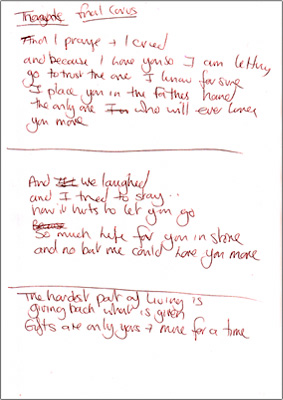 Thoughts final Chorus
And I prayed + I cried
and because I love you so I am letting
go to trust the one I know for sure
I place you in the Fathers hand
the only one who will ever love
you more
And we laughed
and I tried to stay..
how it hurts to let you go
Because
So much life for you in store
and no but me could love you more
The hardest part of living is
giving back what is given
Gifts are only yours + mine for a time